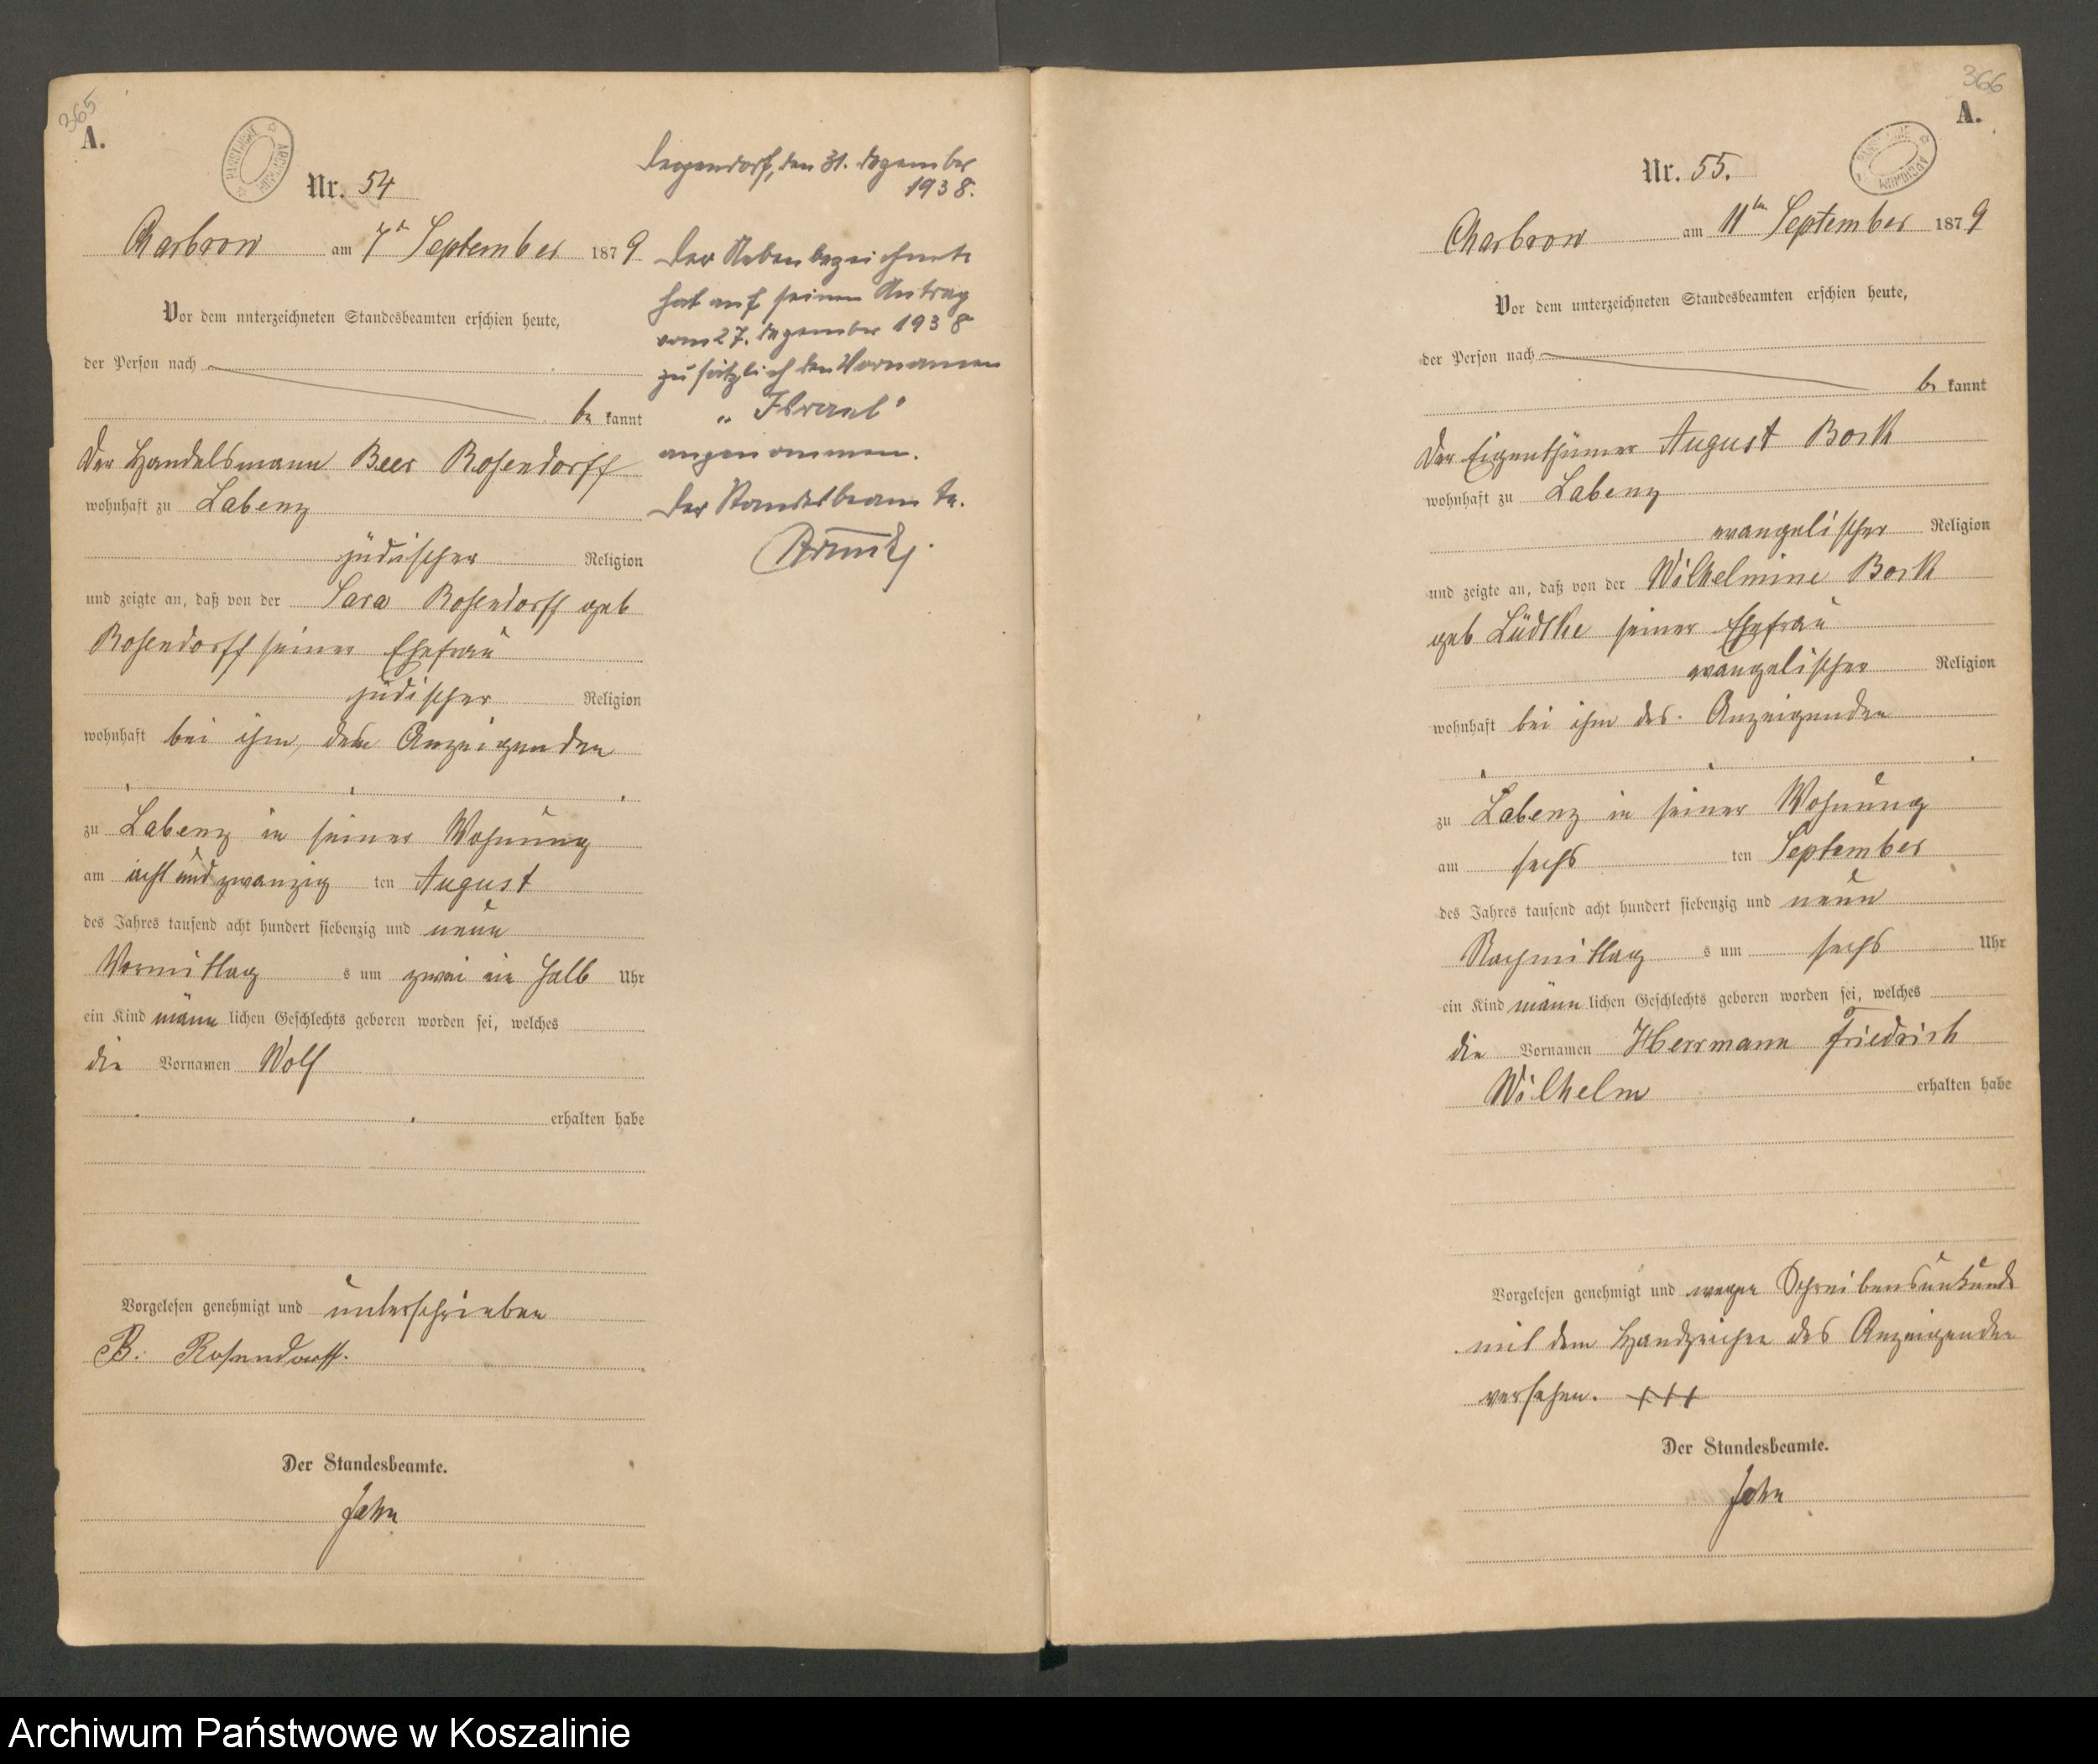 365
A.
Nr. 54
Charbrow am 7ten September 1879
Vor dem unterzeichneten Standesbeamten erschien heute,
der Person nach
be kannt
Der Handelsmann Beer Rosendorff
wohnhaft zu Labenz
jüdischer Religion
und zeigte an, daß von der Sara Rosendorff geb
Rosendorff seiner Ehefrau
jüdischer Religion
wohnhaft bei ihm, dem Anzeigenden
zu Labenz in seiner Wohnung
am acht und zwanzig ten August
des Jahres tausend acht hundert siebenzig und neun
Vormittag s um zwei ein halb Uhr
ein Kind männ lichen Geschlechts geboren worden sei, welches
die Vornamen Wolf
erhalten habe
Vorgelesen genehmigt und unterschrieben
B. Rosendorff.
Der Standesbeamte.
John
den 31. Dezember
1938.
Der Nebenbezeichnete
hat auf seinen Antrag
vom 27. Dezember 1938
zusätzlich den Vornamen
„Israel“
angenommen.
Der Standesbeamte.
366
A.
Nr. 55.
Charbrow am 11ten September 1879
Vor dem unterzeichneten Standesbeamten erschien heute,
der Person nach
be kannt
Der Eigenthümer August Bork
wohnhaft zu Labenz
evangelischer Religion
und zeigte an, daß von der Wilhelmine Bork
geb Lüdtke seiner Ehefrau
evangelischer Religion
wohnhaft bei ihm des Anzeigenden
zu Labenz in seiner Wohnung
am sechs ten September
des Jahres tausend acht hundert siebenzig und neun
Nachmittag s um sechs Uhr
ein Kind männ lichen Geschlechts geboren worden sei, welches
die Vornamen Herrmann Friedrich
Wilhelm erhalten habe
Vorgelesen genehmigt und wegen Schreibensunkunde
mit dem Handzeichen des Anzeigenden
versehen. +++
Der Standesbeamte.
John
Archiwum Państwowe w Koszalinie